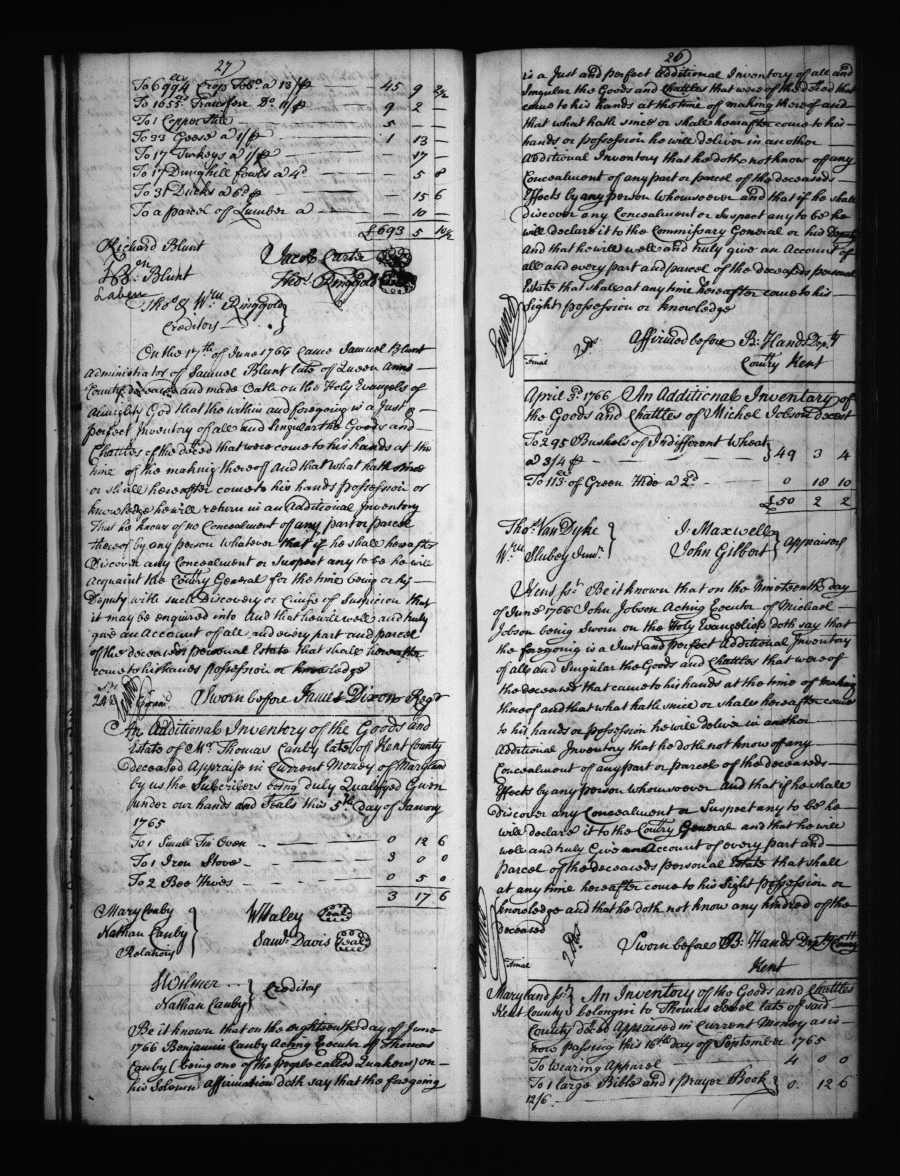 27
To 6994 lb Crop Tobo a 13/ p — 45 9 2½
To 1653 lb Transferr Do 11/ p — 9 2 —
To 1 Copper Still — 5 — —
To 33 Geese a 1/ p — 1 13 —
To 17 Turkeys a 1/ p — — 17 —
To 17 Dunghill fowls a 4d — — 5 8
To 31 Ducks a 6d p — — 15 6
To a parcel of Lumber a — — 10 —
£693 5 10½
Richard Blunt
Jacob Carter
Blunt
Thos Ringgold
Thos & Wm Ringgold
Creditors
On the 17th of June 1766 Came Samuel Blunt
Administrator of Samuel Blunt late of Queen Anns
County deceased and made Oath on the Holy Evangels of
Almighty God that the within and foregoing is a Just &
perfect Inventory of all and Singular the Goods and
Chattles of the decd that were come to his hands at the
time of the making thereof And that what hath since
or shall hereafter come to his hands possession or
knowledge he will return in an Additional Inventory
That he knows of no Concealment of any part or parcel
thereof by any person whatever that if he shall hereafter
Discover any Concealment or Suspect any to be he will
Acquaint the Comry General for the time being or his
Deputy with such Discovery or Cause of Suspicion that
it may be enquired into And that he will well and truly
give an Account of all and every part and parcel
of the deceaseds personal Estate that shall hereafter
come to his hands possession or knowledge
Sworn before James Dixon Regr
An Additional Inventory of the Goods and
Estate of Mr Thomas Canby late of Kent County
deceased Appraise in Current Money of Maryland
by us the Subcribers being duly Qualifyed Given
under our hands and Seals this 5th day of January
1765
To 1 Small Tin Oven — 0 12 6
To 1 Iron Stove — 3 0 0
To 2 Bee Hives — 0 5 0
3 17 6
Mary Canby
Nathan Canby
Relations
W Haley Seal
Saml Davis Seal
S Wilmer
Nathan Canby
Creditors
Be it known that on the eighteenth day of June
1766 Benjamin Canby Acting Executor of Thomas
Canby (being one of the people called Quakers) on
his Solemn Affirmation doth say that the foregoing
26
is a Just and perfect Additional Inventory of all and
Singular the Goods and Chattles that were of the deced that
came to his hands at the time of making thereof and
that what hath since or shall hereafter come to his
hands or possession he will deliver in another
Additional Inventory that he doth not know of any
Concealment of any part or parcel of the deceaseds
Effects by any person whomsoever and that if he shall
discover any Concealment or Suspect any to be he
will declare it to the Commissary General or his Deputy
And that he will well and truly give an Account of
all and every part and parcel of the deceaseds personal
Estate that shall at any time hereafter come to his
Sight possession or knowledge
Affirmed before B: Hands Depty
Comry Kent
April 3d 1766 An Additional Inventory of
the Goods and Chattles of Michel Jobson deceast
To 295 Bushels of Indifferent Wheat
a 3/4 p — 49 3 4
To 113 lb of Green Hide a 2d — 0 18 10
£50 2 2
Thos Van Dyke
Wm Slubey Junr
J. Maxwell
John Gilbert
Appraisers
Kent sst Be it known that on the Nineteenth day
of June 1766 John Jobson Acting Excutor of Michael
Jobson being Sworn on the Holy Evangelists doth say that
the foregoing is a Just and perfect Additional Inventory
of all and Singular the Goods and Chattles that were of
the deceased that came to his hands at the time of making
thereof and that what hath since or shall hereafter come
to his hands or possession he will deliver in another
Additional Inventory that he doth not know of any
Concealment of any part or parcel of the deceaseds
Effects by any person whomsoever and that if he shall
discover any Concealment or Suspect any to be he
will declare it to the Comry General and that he will
well and truly Give an Account of every part and
parcel of the deceaseds personal Estate that shall
at any time hereafter come to his Sight possession or
knowledge and that he doth not know any kindred of the
deceased
Sworn before B: Hands Depty Comry
Kent
Maryland sst An Inventory of the Goods and Chattles
Kent County belongin to Thomas late of said
County deced Appraised in Current Money as is
now passing this 16th day of September 1765
To Wearing Apparel — 4 0 0
To 1 large Bible and 1 prayer Book 0 12 6
12/6